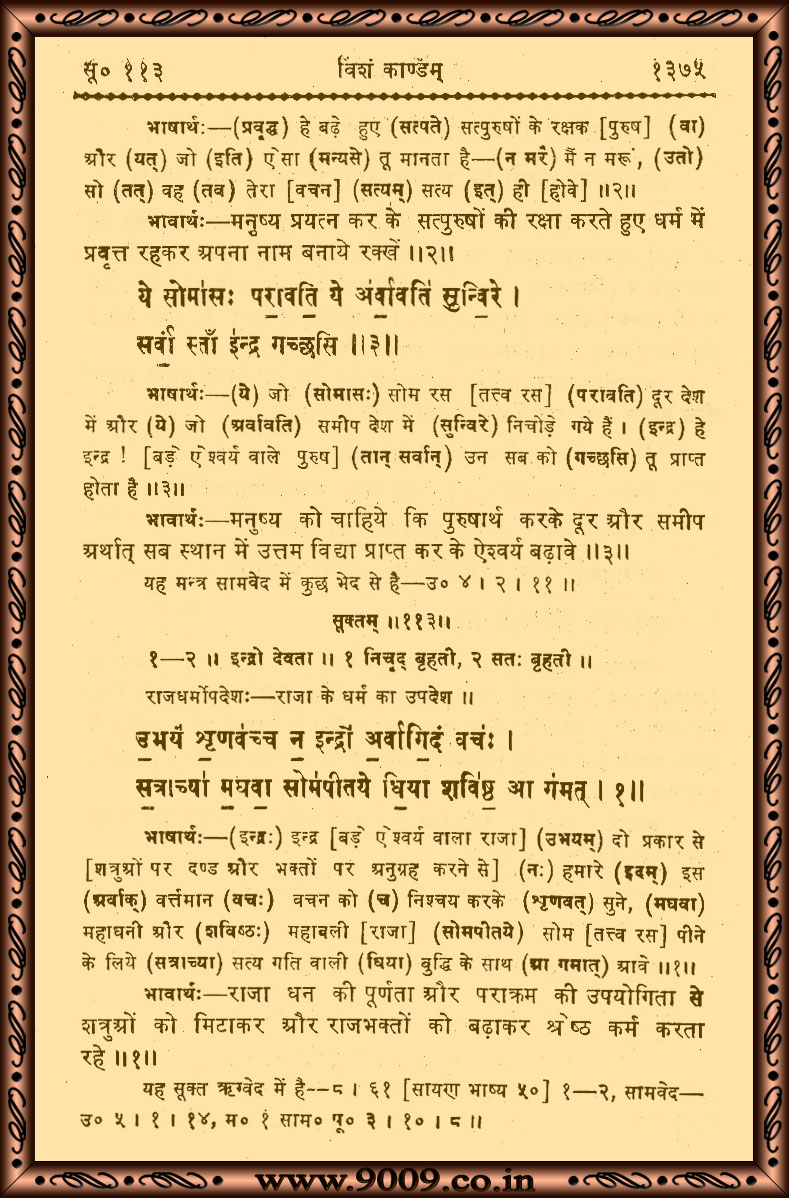 सू० ११३ विंशं काण्डम् १३७५
भाषार्थः—(प्रवृद्ध) हे बढ़े हुए (सत्पते) सत्पुरुषों के रक्षक [पुरुष] (वा)
और (यत्) जो (इति) ऐसा (मन्यसे) तू मानता है—(न मरै) मैं न मरूं, (उतो)
सो (तत्) वह (तव) तेरा [वचन] (सत्यम्) सत्य (इत्) ही [होवे] ॥२॥
भावार्थः—मनुष्य प्रयत्न कर के सत्पुरुषों की रक्षा करते हुए धर्म में
प्रवृत्त रहकर अपना नाम बनाये रक्खें ॥२॥
ये सोमा॑सः परा॒वति॒ ये अ॑र्वा॒वति॑ सुन्वि॒रे ।
सर्वां॒ स्ताँ इ॑न्द्र गच्छसि ॥३॥
भाषार्थः—(ये) जो (सोमासः) सोम रस [तत्त्व रस] (परावति) दूर देश
में और (ये) जो (अर्वावति) समीप देश में (सुन्विरे) निचोड़े गये हैं । (इन्द्र) हे
इन्द्र ! [बड़े ऐश्वर्य वाले पुरुष] (तान् सर्वान्) उन सब को (गच्छसि) तू प्राप्त
होता है ॥३॥
भावार्थः—मनुष्य को चाहिये कि पुरुषार्थ करके दूर और समीप
अर्थात् सब स्थान में उत्तम विद्या प्राप्त कर के ऐश्वर्य बढ़ावे ॥३॥
यह मन्त्र सामवेद में कुछ भेद से है—उ० ४ । २ । ११ ॥
सूक्तम् ॥११३॥
१—२ ॥ इन्द्रो देवता ॥ १ निचृद् बृहती, २ सतः बृहती ॥
राजधर्मोपदेशः—राजा के धर्म का उपदेश ॥
उ॒भयं॑ शृ॒णव॑च्च न॒ इन्द्रो॑ अ॒र्वागि॒दं वचः॑ ।
स॒त्राच्या॑ म॒घवा॒ सोम॑पीतये धि॒या शवि॑ष्ठ॒ आ ग॑मत् । १॥
भाषार्थः—(इन्द्रः) इन्द्र [बड़े ऐश्वर्य वाला राजा] (उभयम्) दो प्रकार से
[शत्रुओं पर दण्ड और भक्तों पर अनुग्रह करने से] (नः) हमारे (इदम्) इस
(अर्वाक्) वर्त्तमान (वचः) वचन को (च) निश्चय करके (शृणवत्) सुने, (मघवा)
महाधनी और (शविष्ठः) महाबली [राजा] (सोमपीतये) सोम [तत्त्व रस] पीने
के लिये (सत्राच्या) सत्य गति वाली (धिया) बुद्धि के साथ (आ गमात्) आवे ॥१॥
भावार्थः—राजा धन की पूर्णता और पराक्रम की उपयोगिता से
शत्रुओं को मिटाकर और राजभक्तों को बढ़ाकर श्रेष्ठ कर्म करता
रहे ॥१॥
यह सूक्त ऋग्वेद में है--८ । ६१ [सायण भाष्य ५०] १—२, सामवेद—
उ० ५ । १ । १४, म० १ साम० पू० ३ । १० । ८ ॥
www.9009.co.in